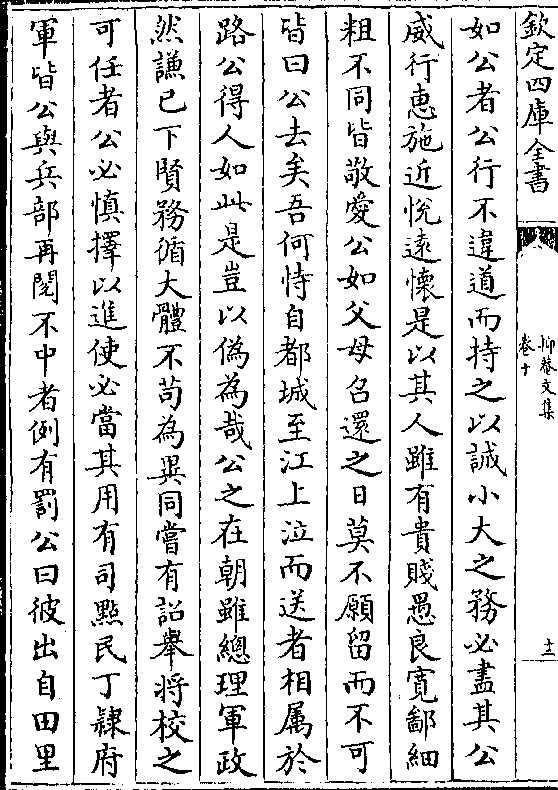 欽定四庫全書
抑菴文集
卷十
十二
如公者公行不違道而持之以誠小大之務必盡其公
威行惠施近悅遠懷是以其人雖有貴賤愚良寛鄙細
粗不同皆敬愛公如父母召還之日莫不願留而不可
皆曰公去矣吾何恃自都城至江上泣而送者相属於
路公得人如此是豈以偽為哉公之在朝雖總理軍政
然謙已下賢務循大體不苟為異同嘗有詔舉将校之
可任者公必慎擇以進使必當其用有司㸃民丁隸府
軍皆公與兵部再閲不中者例有罰公曰彼出自田里